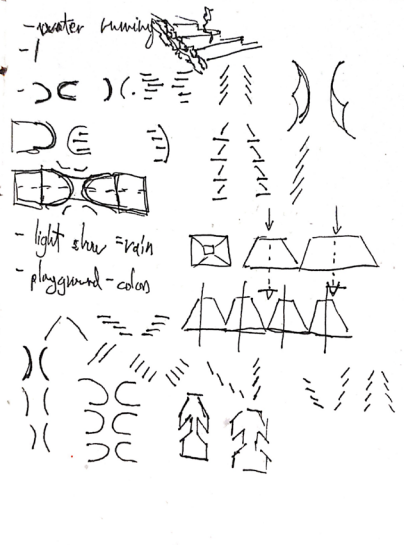 - water running
- light show = rain
- playground - colors